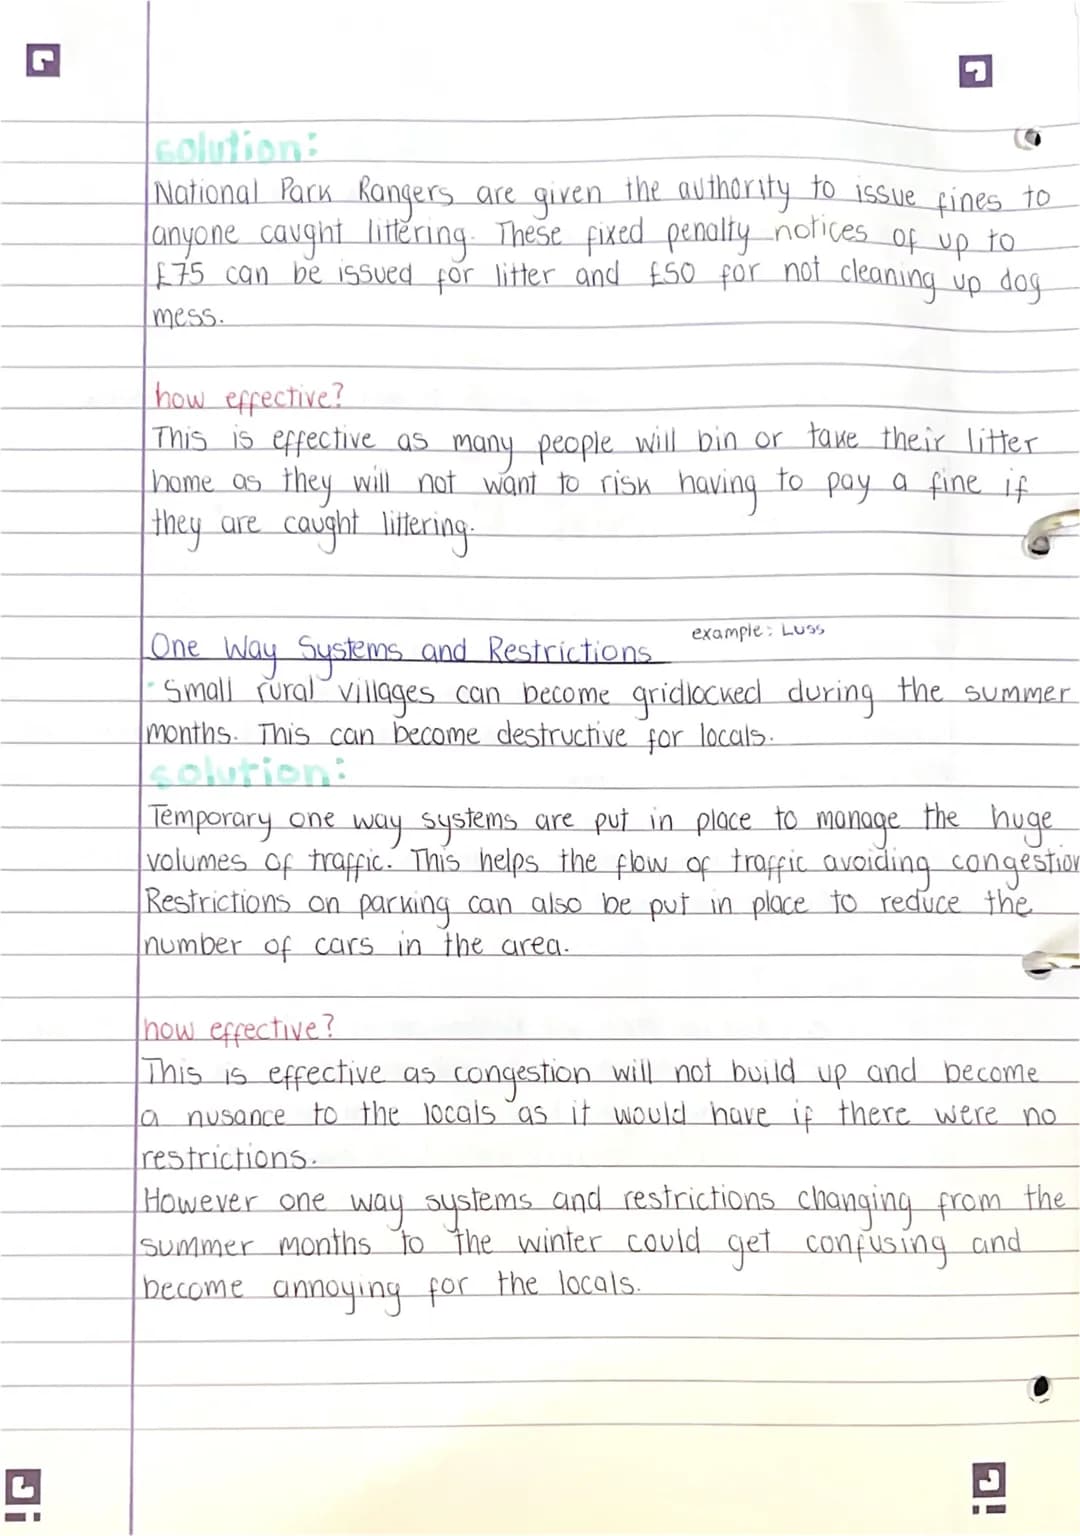 solution:
National Park Rangers are given the authority to issue fines to
anyone caught littering. These fixed penalty notices of up to
£75 can be issued for litter and £50 for not cleaning up dog
mess.
how effective?
This is effective as many people will bin or take their litter
home as they will not want to risk having to pay a fine if
they are caught littering.
One Way Systems and Restrictions example: Luss
· Small rural villages can become gridlocked during the summer
months. This can become destructive for locals.
solution:
Temporary one way systems are put in place to manage the huge
volumes of traffic. This helps the flow of traffic avoiding congestion
Restrictions on parking can also be put in place to reduce the
number of cars in the area.
how effective?
This is effective as congestion will not build up and become
a nusance to the locals as it would have if there were no
restrictions.
However one way systems and restrictions changing from the
summer months to the winter could get confusing and
become annoying for the locals.